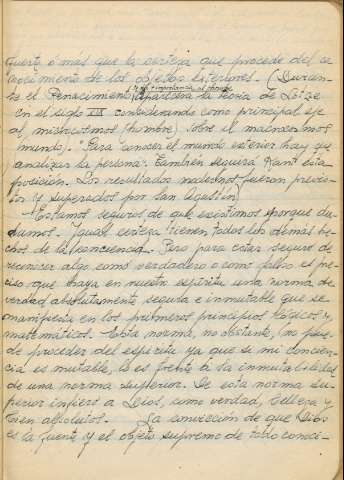 fuerte o más que la certeza que procede del co
nocimiento de los objetos exteriores. (Duran-
te el Renacimiento
aparecerá la teoría de Lotze
en el siglo XIX considerando como principal eje
al microcosmos (hombre) sobre el macrocosmos
(mundo). "Para conocer el mundo exterior hay que
analizar la persona". También seguirá Kant esta
posición. Los resultados fueron previs-
tos y superados por San Agustín)
-Estamos seguros de que existimos porque du-
damos. Igual certeza tienen todos los demás he-
chos de la conciencia. Pero para estar seguro de
reconocer algo como verdadero o como falso es pre-
ciso que haya en nuestro espíritu una norma de
verdad absolutamente segura e inmutable que se
manifiesta en los primeros principios lógicos y
matemáticos. Esta norma, no obstante, no pue-
de proceder del espíritu ya que si mi concien-
cia es mutable, lo es frente a la inmutabilidad
de una norma superior. De esta norma su-
perior infiero a Dios, como verdad, belleza y
bien absolutos. La convicción de que Dios
es la fuente y el objeto supremo de todo conoci-